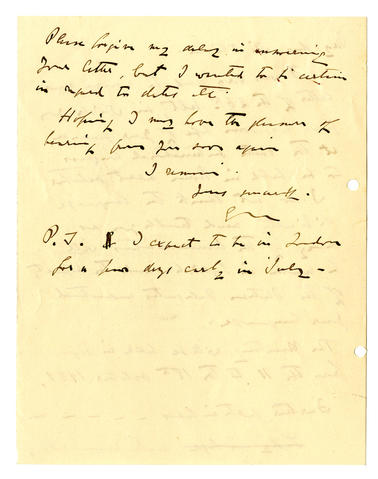 Please forgive my delay in answering
your letter, but I wanted to be certain
in regard to dates etc.
Hoping I may have the pleasure of
hearing from you soon again
I remain
Yours sincerely.
P.S. I expect to be in London
for a few days early in July –